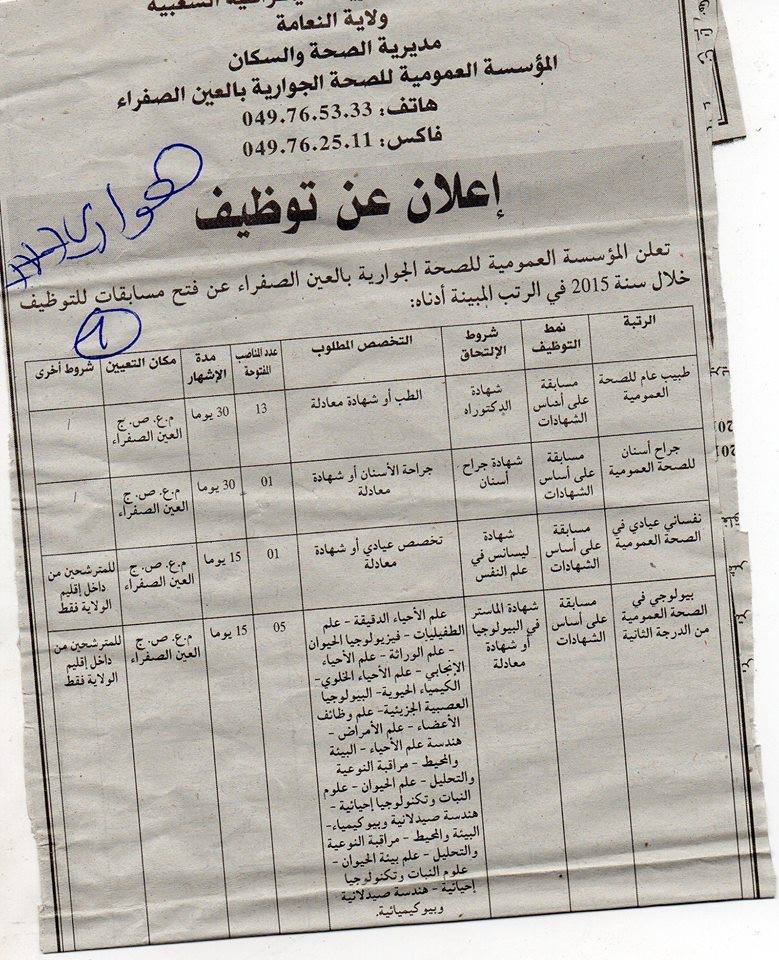 الشعبية
ولاية النعامة
مديرية الصحة والسكان
المؤسسة العمومية للصحة الجوارية بالعين الصفراء
هاتف: 049.76.53.33
فاكس: 049.76.25.11
هواري
إعلان عن توظيف
تعلن المؤسسة العمومية للصحة الجوارية بالعين الصفراء عن فتح مسابقات للتوظيف
خلال سنة 2015 في الرتب المبينة أدناه:
1
الرتبة | نمط التوظيف | شروط الإلتحاق | التخصص المطلوب | عدد المناصب المفتوحة | مدة الإشهار | مكان التعيين | شروط أخرى
طبيب عام للصحة العمومية | مسابقة على أساس الشهادات | شهادة الدكتوراه | الطب أو شهادة معادلة | 13 | 30 يوما | م.ع. ص. ج العين الصفراء | /
جراح أسنان للصحة العمومية | مسابقة على أساس الشهادات | شهادة جراح أسنان | جراحة الأسنان أو شهادة معادلة | 01 | 30 يوما | م.ع. ص. ج العين الصفراء | /
نفساني عيادي في الصحة العمومية | مسابقة على أساس الشهادات | شهادة ليسانس في علم النفس | تخصص عيادي أو شهادة معادلة | 01 | 15 يوما | م.ع. ص. ج العين الصفراء | للمترشحين من داخل إقليم الولاية فقط
بيولوجي في الصحة العمومية من الدرجة الثانية | مسابقة على أساس الشهادات | شهادة الماستر في البيولوجيا أو شهادة معادلة | علم الأحياء الدقيقة - علم | 05 | 15 يوما | م.ع. ص. ج العين الصفراء | للمترشحين من داخل إقليم الولاية فقط
الطفيليات - فيزيولوجيا الحيوان
- علم الوراثة - علم الأحياء
الإنجابي - علم الأحياء الخلوي-
الكيمياء الحيوية- البيولوجيا
العصبية الجزيئية- علم وظائف
الأعضاء - علم الأمراض -
هندسة علم الأحياء - البيئة
والمحيط - مراقبة النوعية
والتحليل - علم الحيوان - علوم
النبات وتكنولوجيا إحيائية -
هندسة صيدلانية وبيوكيمياء-
البيئة والمحيط - مراقبة النوعية
والتحليل - علم بيئة الحيوان -
علوم النبات وتكنولوجيا
إحيائية - هندسة صيدلانية
وبيوكيميائية.